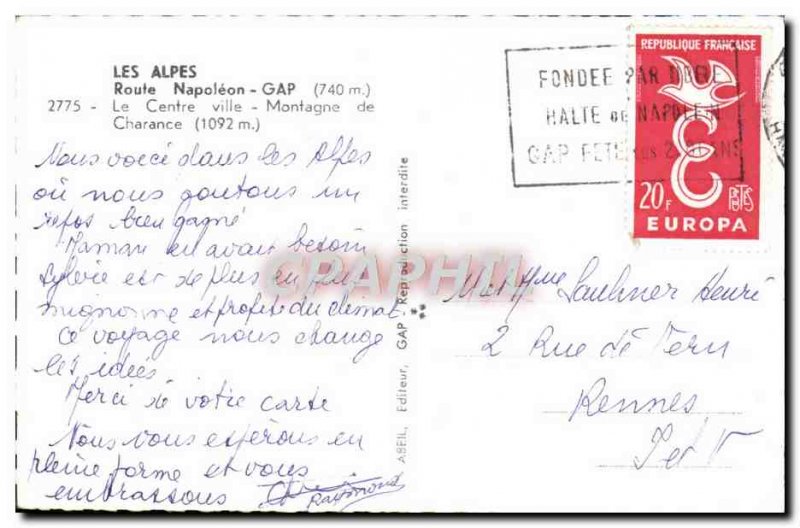 LES ALPES
Route Napoléon - GAP (740 m.)
2775 - Le Centre ville - Montagne de
Charance (1092 m.)
Nous voici dans les Alpes
où nous goutons un
repos bien gagné
Maman en avait besoin
Sylvie est de plus en plus
mignonne et profite du climat.
Ce voyage nous change
les idées
Merci de votre carte
Nous vous espérons en
pleine forme et vous
embrassons
Raymond
ABEIL, Editeur, GAP Reproduction interdite
CPAPHIL
FONDEE PAR
HALTE DE NAPOLEON
GAP FETE SES 2000 ANS
REPUBLIQUE FRANÇAISE
20F
POSTES
EUROPA
M et Mme Henri
2 Rue de Vern
Rennes
I et V